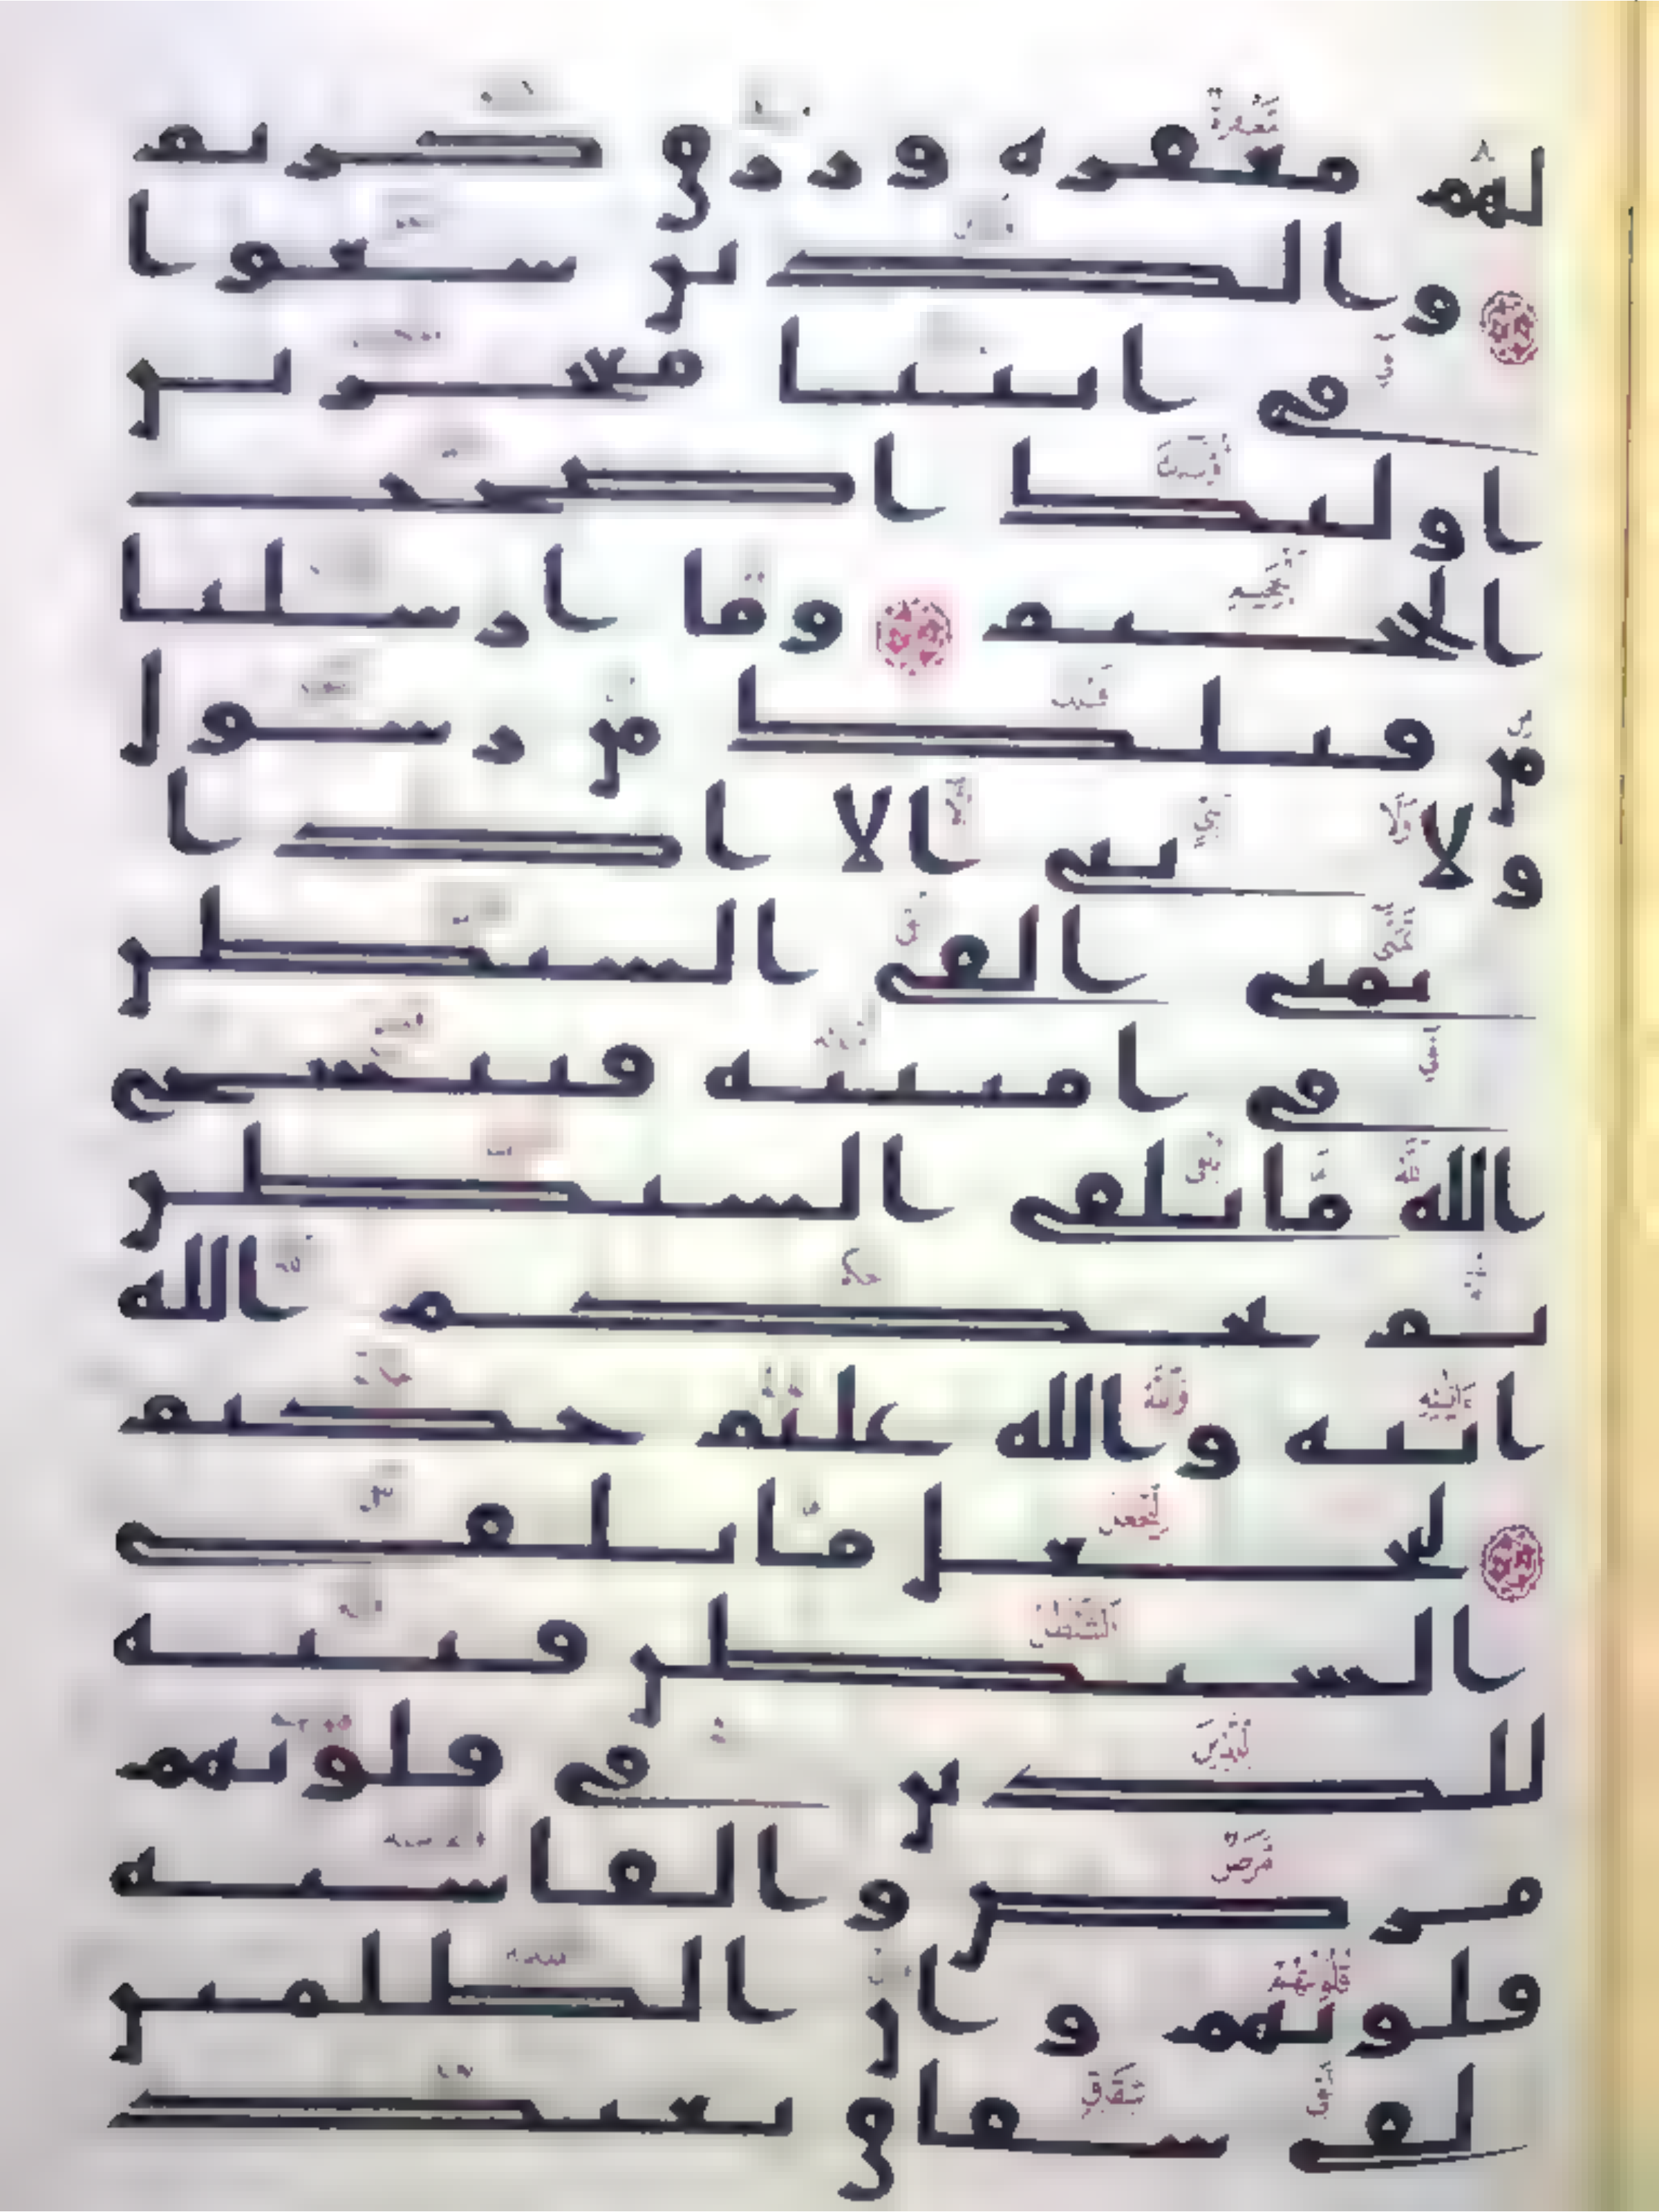 لهم مغفرة ورزق كريم
والذين سعوا
في ايتنا معجزين
اوليك اصحب
الجحيم وما ارسلنا
من قبلك من رسول
ولا نبي الا اذا
تمنى القى الشيطن
في امنيته فينسخ
الله ما يلقى الشيطن
ثم يحكم الله
ايته والله عليم حكيم
ليجعل ما يلقى
الشيطن فتنه
للذين في قلوبهم
مرض والقاسيه
قلوبهم وان الظلمين
لفى شقاق بعيد